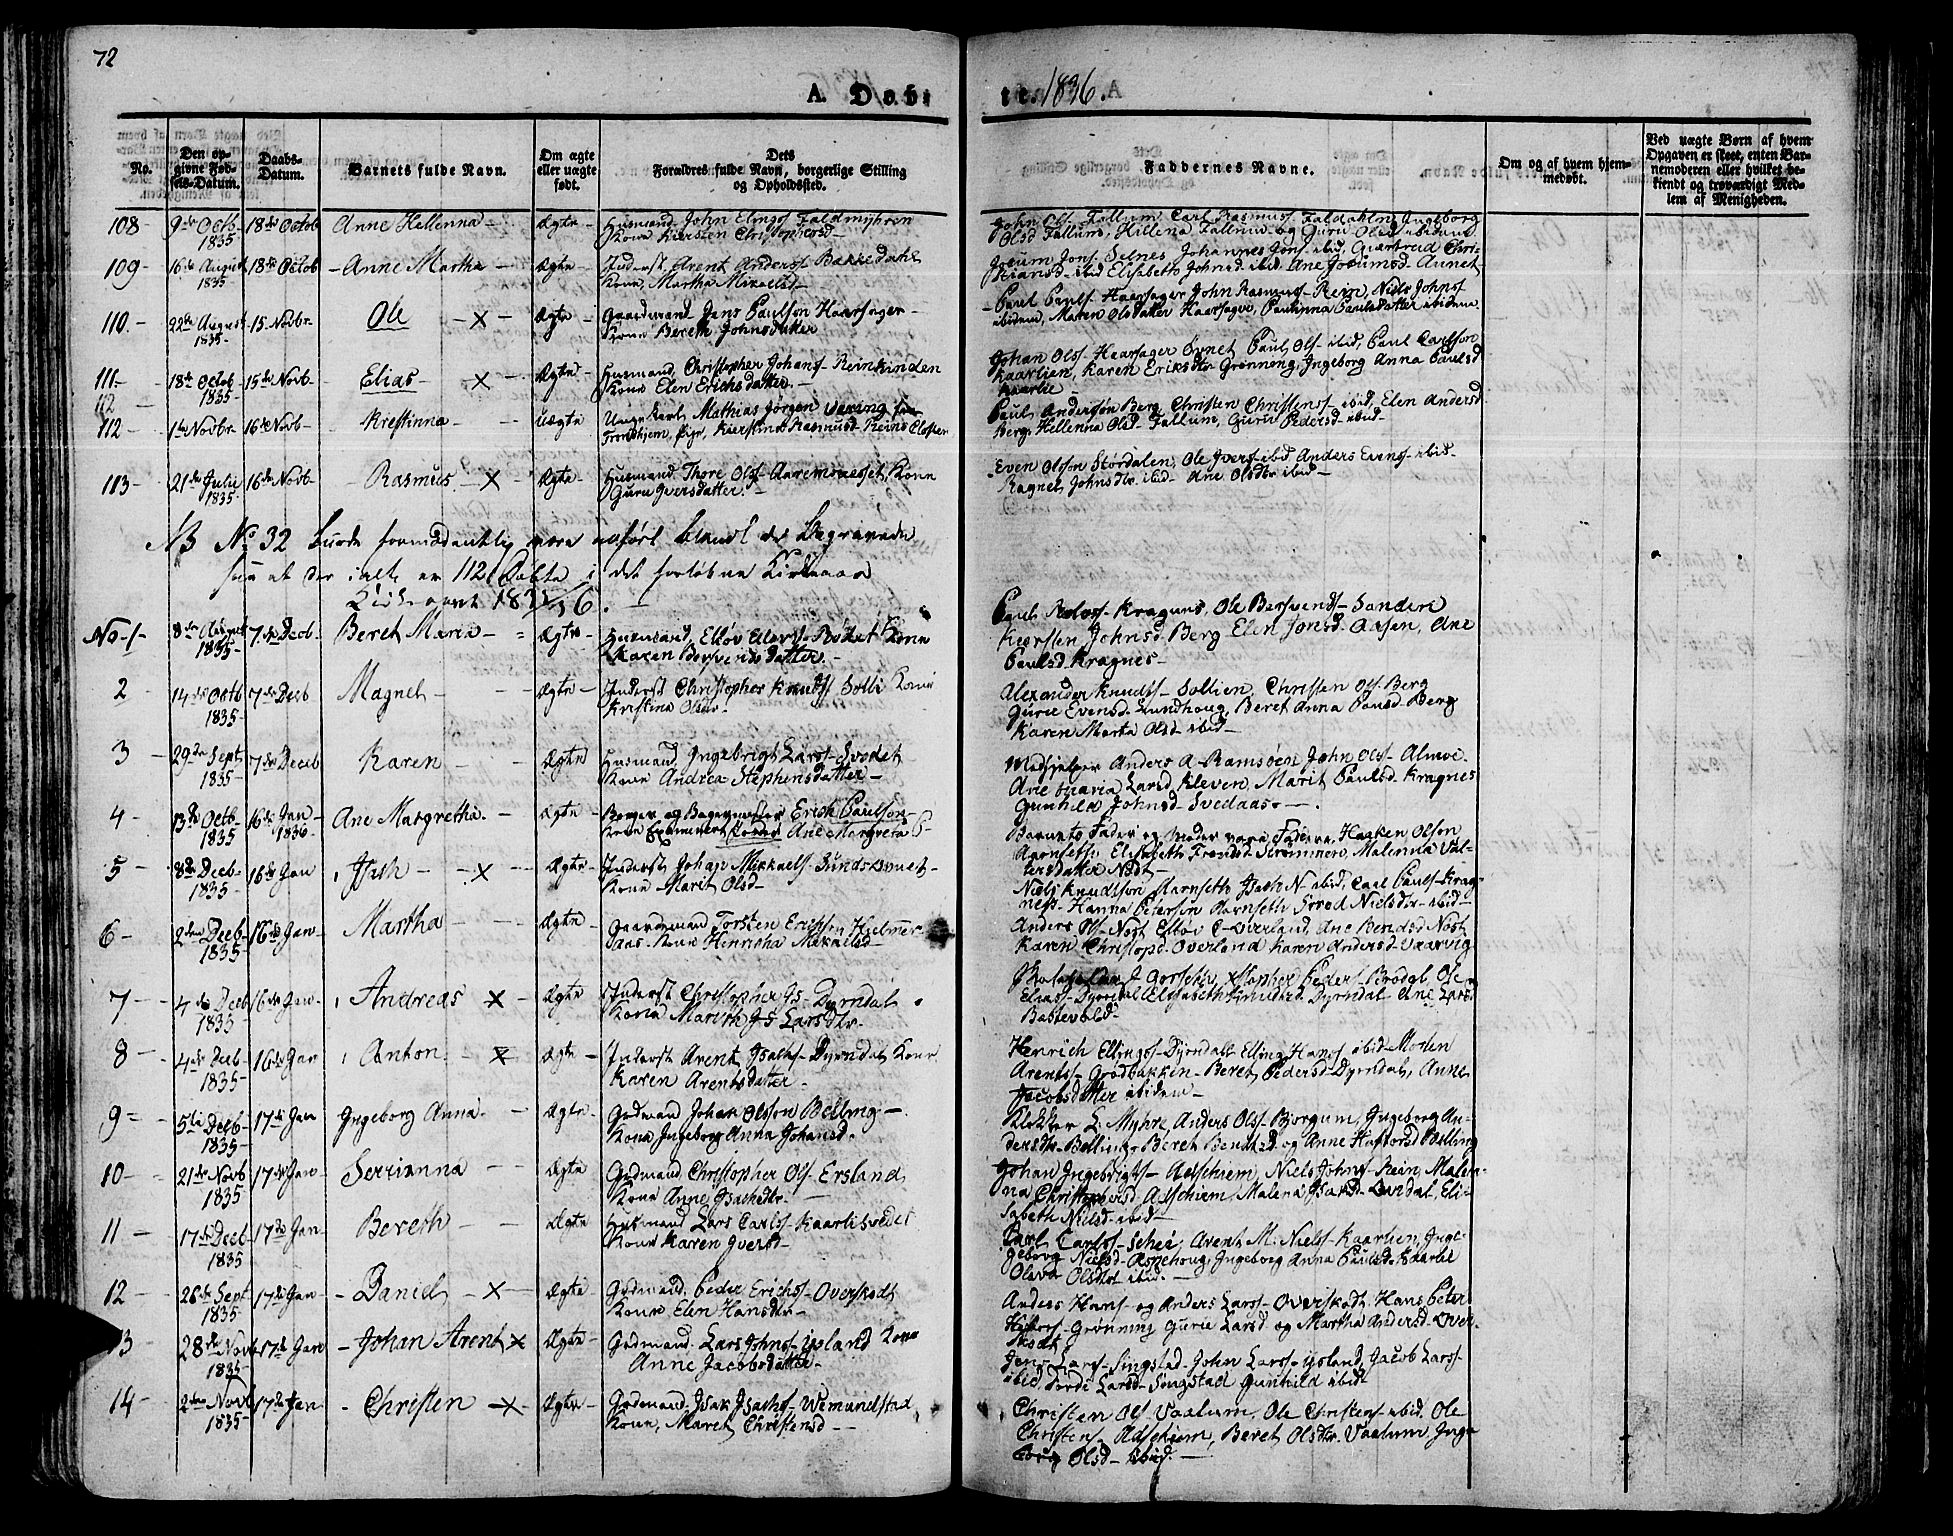 72
A. Døbte. 1836.
No.
Den opgivne Fødsels-Datum.
Daabs-Datum.
Barnets fulde Navn.
Om ægte eller uægte født.
Dets Forældres fulde Navn, borgerlige Stilling og Opholdssted.
Faddernes Navne.
Om og af hvem hjemmedøbt.
Ved uægte Børn af hvem Opgaven er skeet, enten Barnemoderen eller hvilket bekiendt og troværdigt Medlem af Menigheden.
108 9de Octb 1835 18de Octob Anne Hellenna Ægte Husmand John Elings Faldmyhren
Kone Kiersten Christophersd
John Ols Fallum, Carl Rasmus Faldahlen, Ingeborg
Olsd Fallum, Hellena Fallum og Guru Olsd ibidem
109 16de August 1835 18de Octob Anne Martha Ægte Inderst Arent Anders Bakkedahl
Kone, Martha Mikaelsd
Jocum Jons Selnes Johannes Jons ibid, Giærtrud Chri-
stiansd ibid Elisabeth Johnsd ibid Ane Jocumsd Aunet
110 22de August 1835 15 Novbr Ole X Ægte Gaardmand Jens Paulsøn Haarsager
Kone Bereth Johnsdatter
Paul Pauls Haarsager John Rasmus Rein, Niels Johns
ibidem, Maren Olsdatter Haarsager, Paulinna Paulsdatter ibidem
111 18de Octob 1835 15de Novb Elias X Ægte Husmand Christopher Johans Reinskinden
Kone Elen Erichsdatter
Johan Ols Haarsager Øvnet, Paul Ols ibid, Paul Carlsøn
Kaarlien, Karen Eriksdtr Grønneng, Ingeborg Anna Paulsd
Kaarlie
112
112 1te Novbr 16de Novb Kristinna uægte Unge Karl Mathias Jørgen Wæring fra
Trondhjem, Pige, Kierstine Rasmusd Reins Closter
Paul Andersøn Berg, Christen Christens ibid, Elen Andersd
Berg, Hellenna Olsd Fallum, Guru Pedersd ibid
113 21de Julii 1835 16de Novb Rasmus X Ægte Husmand Thore Ols Aaremoesset, Kone
Guru Iversdatter
Even Olssøn Størdalen, Ole Ivers ibid Anders Evens ibid
Ragnel Johnsdtr ibid Ane Olsdtr ibid
NB No 32 burde formodentlig være anført blandt de Begravede
saa at der ialt er 112 Døbte i det forløbne Kirkeaar
Kirkeaaret 1835/36.
No 1 8de August 1835 7de Decb Beret Maria Ægte Husmand, Elløv Elevs Rødet Kone
Karen Bersvendsdatter
Paul Nels Kragnes, Ole Bersvends Sanden
Kiersten Johnsd Berg Elen Jonsd Aasen, Ane
Paulsd Kragnes
2 14de Octb 1835 7de Decb Magnel Ægte Inderst Christopher Knuds Solli Kone
Kristine Olsdr
Alexander Knuds Sollien, Christen Ols Berg
Gurie Evensd Lundhoug, Beret Anna Paulsd Berg
Karen Marta Olsd ibid
3 29de Sept 1835 7de Deceb Karen Ægte Husmand Ingebrigt Lars Svedet
Kone Andrea Stephensdatter
Medhjelper Anders A Ramsøen John Ols Almve
Ane Maria Larsd Kleven Marit Paulsd Kragnes
Gunhild Johnsd Svedaas
4 13de Octb 1835 16de Jan 1836 Ane Margretha Ægte Borger og Bagermester Erich Paulson
Kone Ane Margreta
Barnets Fader og Moder vare Faddere, Haaken Olson
Aarnseth, Elisabeth Trondst Strømmen, Malenna Val-
tersdatter Nøst
5 8de Decb 1835 16de Jan Isach X Ægte Inderst Johan Mikkaels Sundsvnet
Kone Marit Olsd
Niels Knudtson Aarnseth Isach N ibid, Carl Pauls Krag-
ness Hanna Petersen Aarnseth Nielsdtr ibid
6 2den Decb 1835 16de Jan Martha Ægte Gaardmand Torsten Erichsen Hielmer-
aas Kone Henritha Mikaelsd
Anders Ols Nøst Elløv C Overland, Ane Bendtsd Nøst
Karen Christopsd Overland Karen Andersd Vaarvig
7 4de Decb 1835 16de Jan Andreas X Ægte Inderst Christopher Js Dyrndal
Kone Marith Js Larsdtr
J Gorseth, Xstopher Peders Brødgl, Ole
Elias Dyrndal Elisabeth Dyrndal Ane Larsd
Bastevold
8 4de Decb 1835 16de Jan Anton X Ægte Inderst Arent Isachs Dyrndal Kone
Karen Arentsdatter
Henrich Ellings Dyrndal Elling Hans ibid Morten
Arents Grødbakken Beret Pedersd Dyrndal, Anne
Jacobsdatter ibidem
9 5te Decb 1835 17de Jan Ingeborg Anna Ægte Gdmand Johan Olsson Belling
Kone Ingeborg Anna Johansd.
Klokker L. Myhre, Anders Ols Bjørgum, Ingeborg An-
dersdtr Belling Beret Bendtsd og Anne Haftorsd Belling
10 21de Novb 1835 17de Jan Serrianna Ægte Gdmand Christopher Ols Ersland
Kone Anne Isachsdtr
Johan Ingebrigts Adschiem, Niels Johns Rein, Malen-
na Christophersd Adschiem, Malena Isaksd Eli-
sabeth Nielsd ibid
11 17de Decb 1835 17de Jan Bereth Ægte Husmand Lars Carls Kaarlisvedet
Kone Karen Iversd
Carl Carls Schei, Arent M: Niels Kaarlien, Inge-
geborg Nielsd Aspehoug, Ingeborg Anna Paulsd Kaarlie
Oleva Olsdtr ibid.
12 26de Sept 1835 17de Jan Daniel X Ægte Gdmand Peder Erichs Overskodt
Kone Elen Hansdtr
Anders Hans og Anders Lars Overskodt, Hans Peter
Grønning Gurie Larsd og Martha Andersd Over-
skodt
13 28de Novb 1835 17de Jan Johan Arent X Ægte Gdmand Lars Johns Ysland Kone
Anne Jacobsdatter
Jens Lars Singstad John Lars Ysland, Jacob Lars
ibid Tordi Larsd Singstad Gunhild ibid
14 2den Novb 1835 17de Jan Christen X Ægte Gdmand Isak Isachs Wemundstad
Kone, Maret Christensd
Christen Ols Vaalum, Ole Christens ibid, Ole
Christens Adschiem, Beret Olsdtr Vaalum, Inge-
borg Olsd ibid.